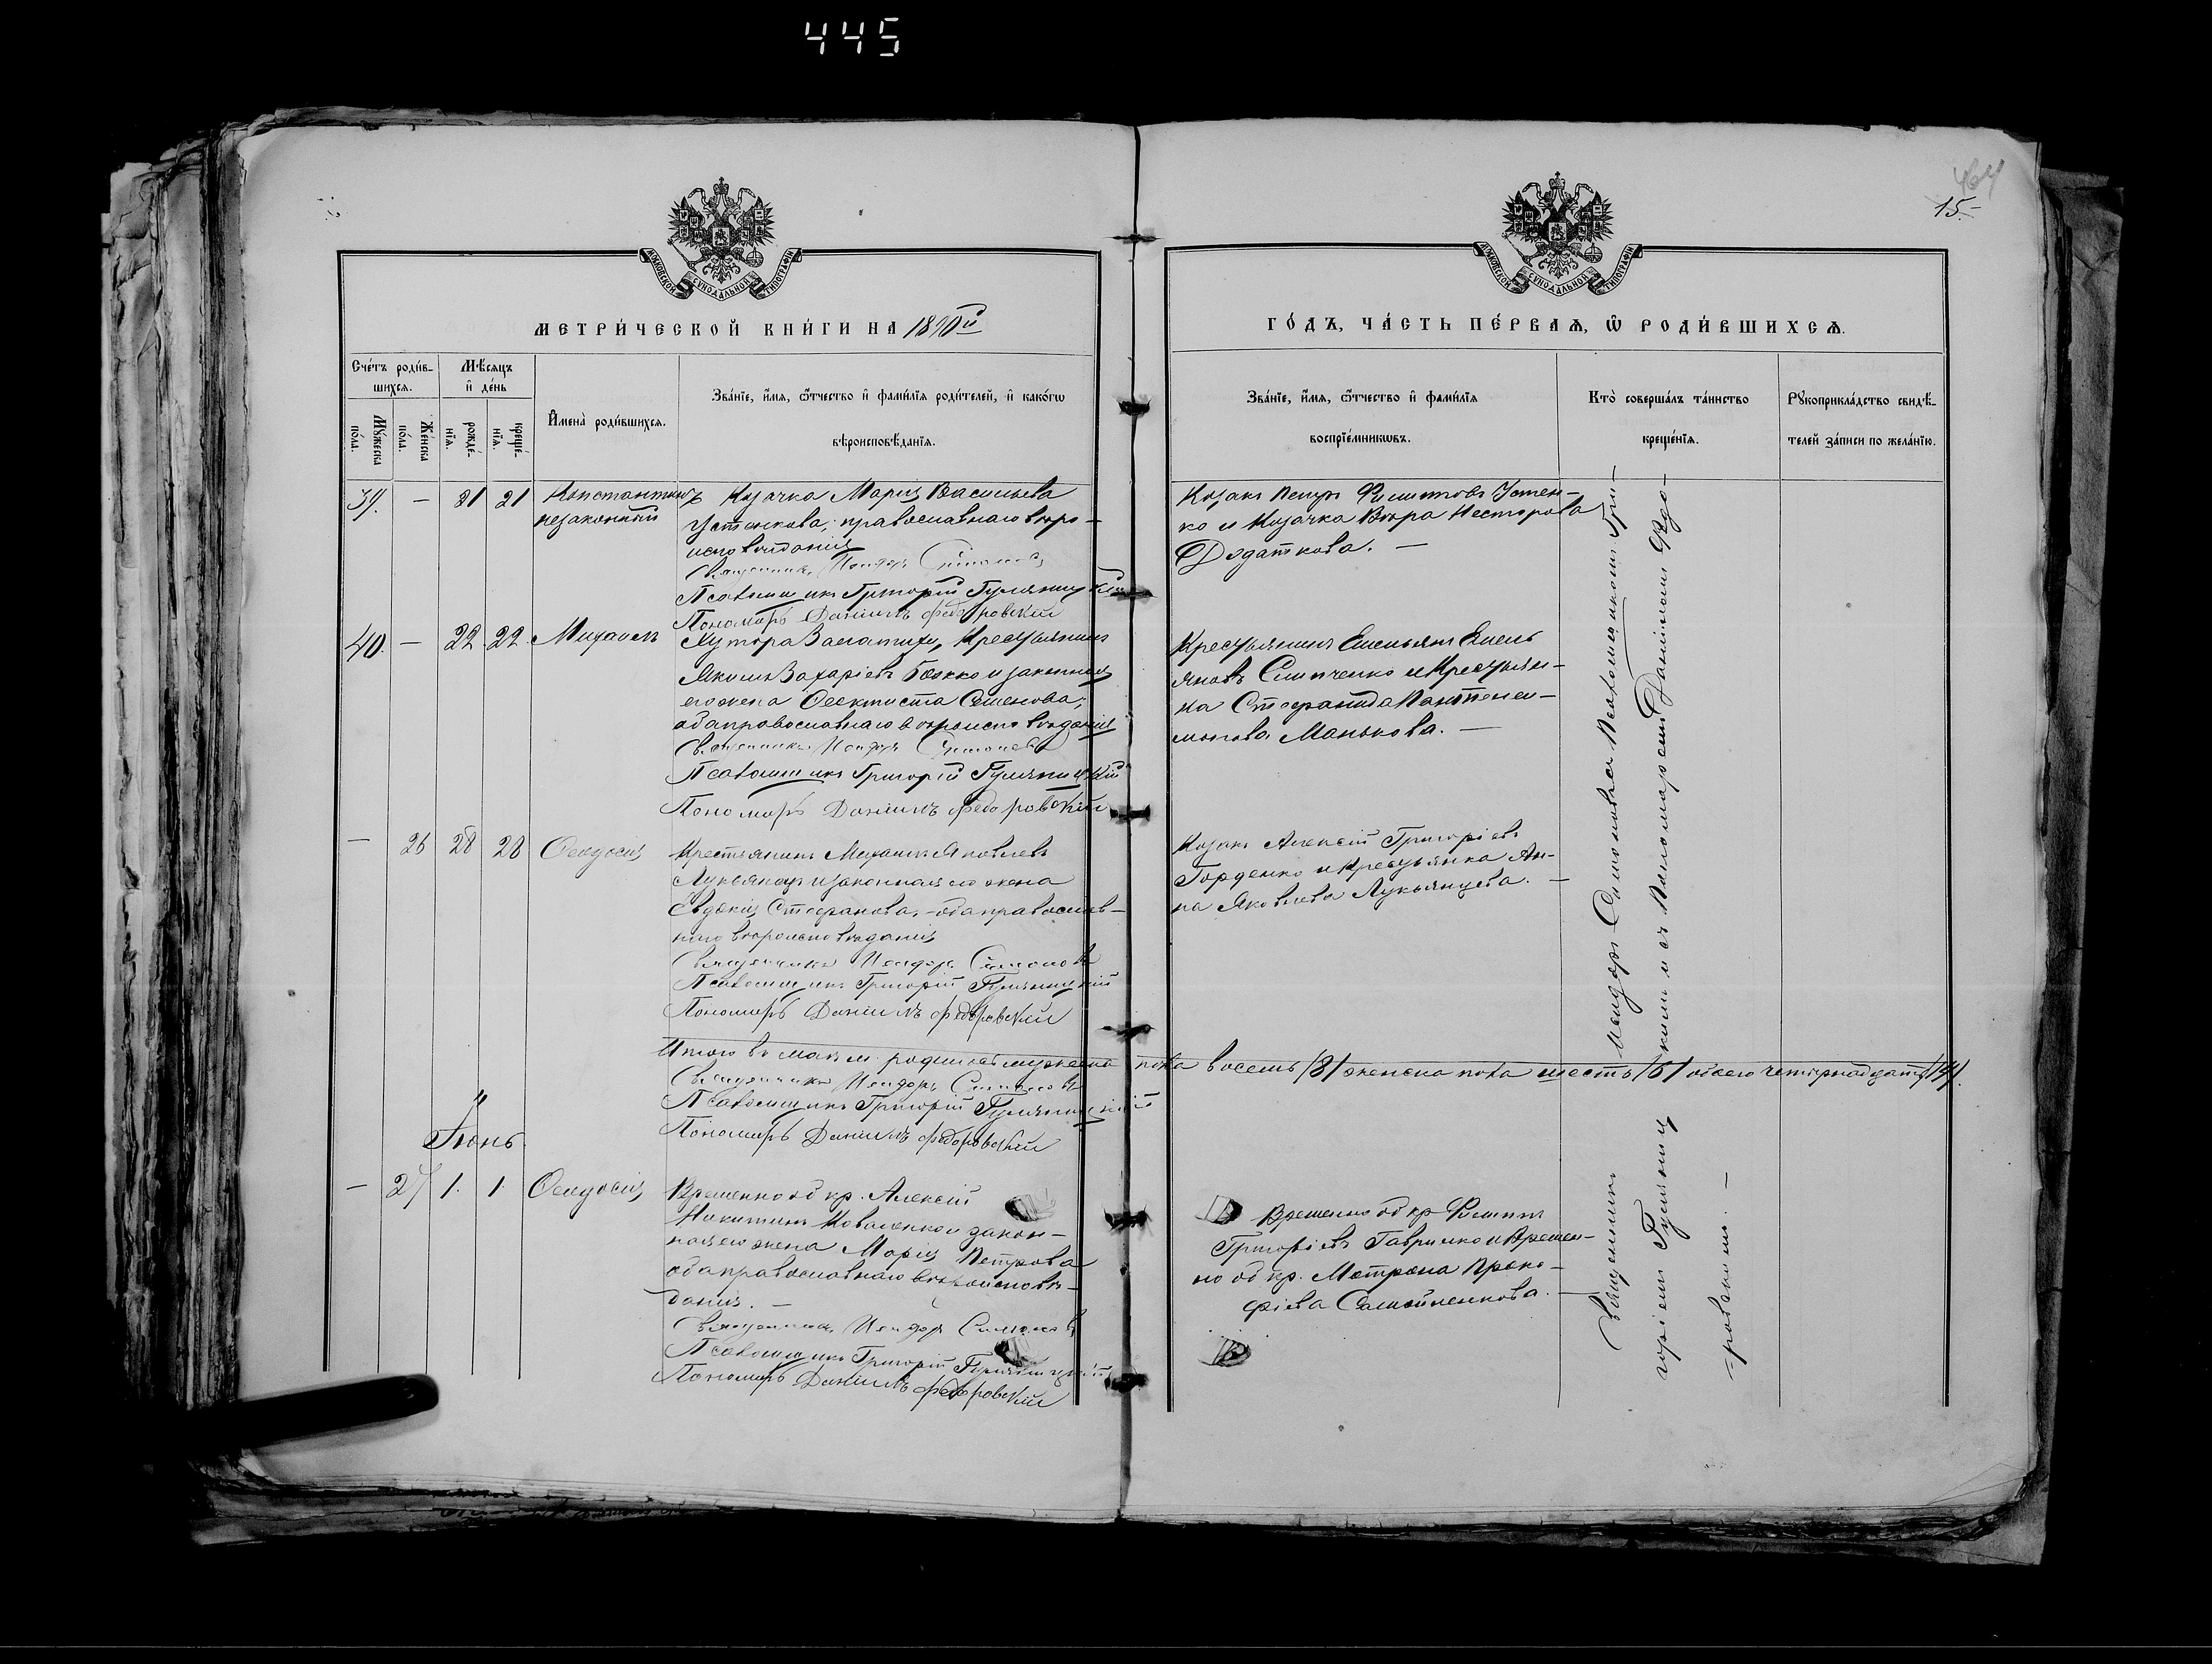 445
464
15.
МОСКОВСКОЙ СУНОДАЛЬНОЙ ТИПОГРАФІИ
МОСКОВСКОЙ СУНОДАЛЬНОЙ ТИПОГРАФІИ
МЕТРИ́ЧЕСКОЙ КНИ́ГИ НА 18
ГО́ДЪ, ЧА́СТЬ ПЕ́РВАѦ, Ѿ РОДИ́ВШИХСѦ.
Сче́тъ роди́в-
шихсѧ.
Мꙋ́жеска по́ла.
Же́нска по́ла.
Мѣ́сѧцъ
и҆ де́нь
рожде́-
нїѧ.
креще́-
нїѧ.
И҆мена̀ роди́вшихсѧ.
Зва́нїе, и҆́мѧ, ѻ҆́тчество и҆ фамѝлїѧ роди́телей, и҆ како́гѡ
вѣроисповѣ́данїѧ.
Зва́нїе, и҆́мѧ, ѻ҆́тчество и҆ фамѝлїѧ
воспрїе́мникѡвъ.
Кто̀ соверша́лъ та́инство
креще́нїѧ.
Рꙋкоприкла́дство свидѣ́-
телей за́писи по жела́нїю.
39. — 21 21 Константинъ
незаконный
Козачка Марія Васильева
Устенкова, православнаго вѣро-
исповѣданія
Священникъ Исидоръ Симоновъ
Псаломщикъ Григорій Гуляницкій
Пономарь Даніилъ Федоровскій
Козакъ Петръ Филиповъ Устен-
ко и Козачка Вѣра Несторова
Додаткова. —
40. — 22 22 Михаилъ
Хутора Крестьянинъ
Якимъ Захаріевъ Божко и законная
его жена Феоктиста Семенова,
оба православнаго вѣроисповѣданія
Священникъ Исидоръ Симоновъ
Псаломщикъ Григорій Гуляницкій
Пономарь Даніилъ Федоровскій
Крестьянинъ Емельянъ Емель
яновъ Слипченко и Крестьян-
ка Стефанида Пантелеи-
монова Манькова. —
— 26 28 28 Феодосія
Крестьянинъ Михаилъ Яковлевъ
Лукьянецъ и законная его жена
Евдокія Стефанова, оба православ-
наго вѣроисповѣданія
Священникъ Исидоръ Симоновъ
Псаломщикъ Григорій Гуляницкій
Пономарь Даніилъ Федоровскій
Козакъ Алексій Григоріевъ
Горденко и Крестьянка Ан-
на Яковлева Лукьянцева. —
Итого въ маѣ м. родилось мужеска пола восемь /8/ женска пола шесть /6/ обоего четырнадцать /14/.
Священникъ Исидоръ Симоновъ
Псаломщикъ Григорій Гуляницкій
Пономарь Даніилъ Федоровскій
Іюнь.
— 27 1. 1. Феодосія
Временно об кр. Алексій
Никитинъ Коваленко и закон-
ная его жена Марія Петрова
оба православнаго вѣроисповѣ-
данія. —
Священникъ Исидоръ Симоновъ
Псаломщикъ Григорій Гуляницкій
Пономарь Даніилъ Федоровскій
Временно об кр Филипъ
Григоріевъ Гавришко и Времен-
но об кр. Матрона Проко-
фіева Самойленкова. —
Священникъ Исидоръ Симоновъ съ Псаломщикомъ Гри-
горіемъ Гуляниц кимъ и съ Пономаремъ Даніиломъ Федо-
-ровскимъ. —